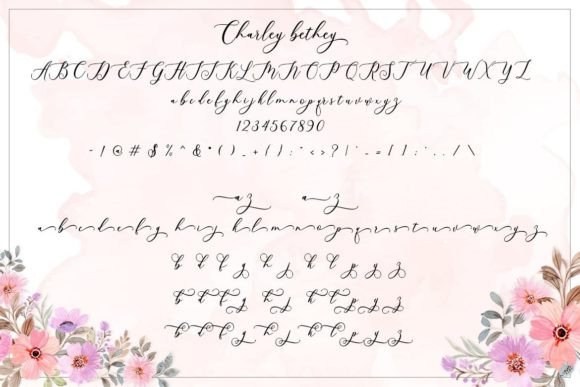 Charley bethey
ABCDEFGHIJKLMNOPQRSTUVWXYZ
abcdefghijklmnopqrstuvwxyz
1234567890
~ ! @ # $ % ^ & * ( ) _ + { } : " < > ? | ` - = [ ] ; ' , . / \
a z a z
a b c d e f g h i j k l m n o p q r s t u v w x y z
b d f g h j k l p y z
b d f g h j k l p y z
b d f g h j k l p y z